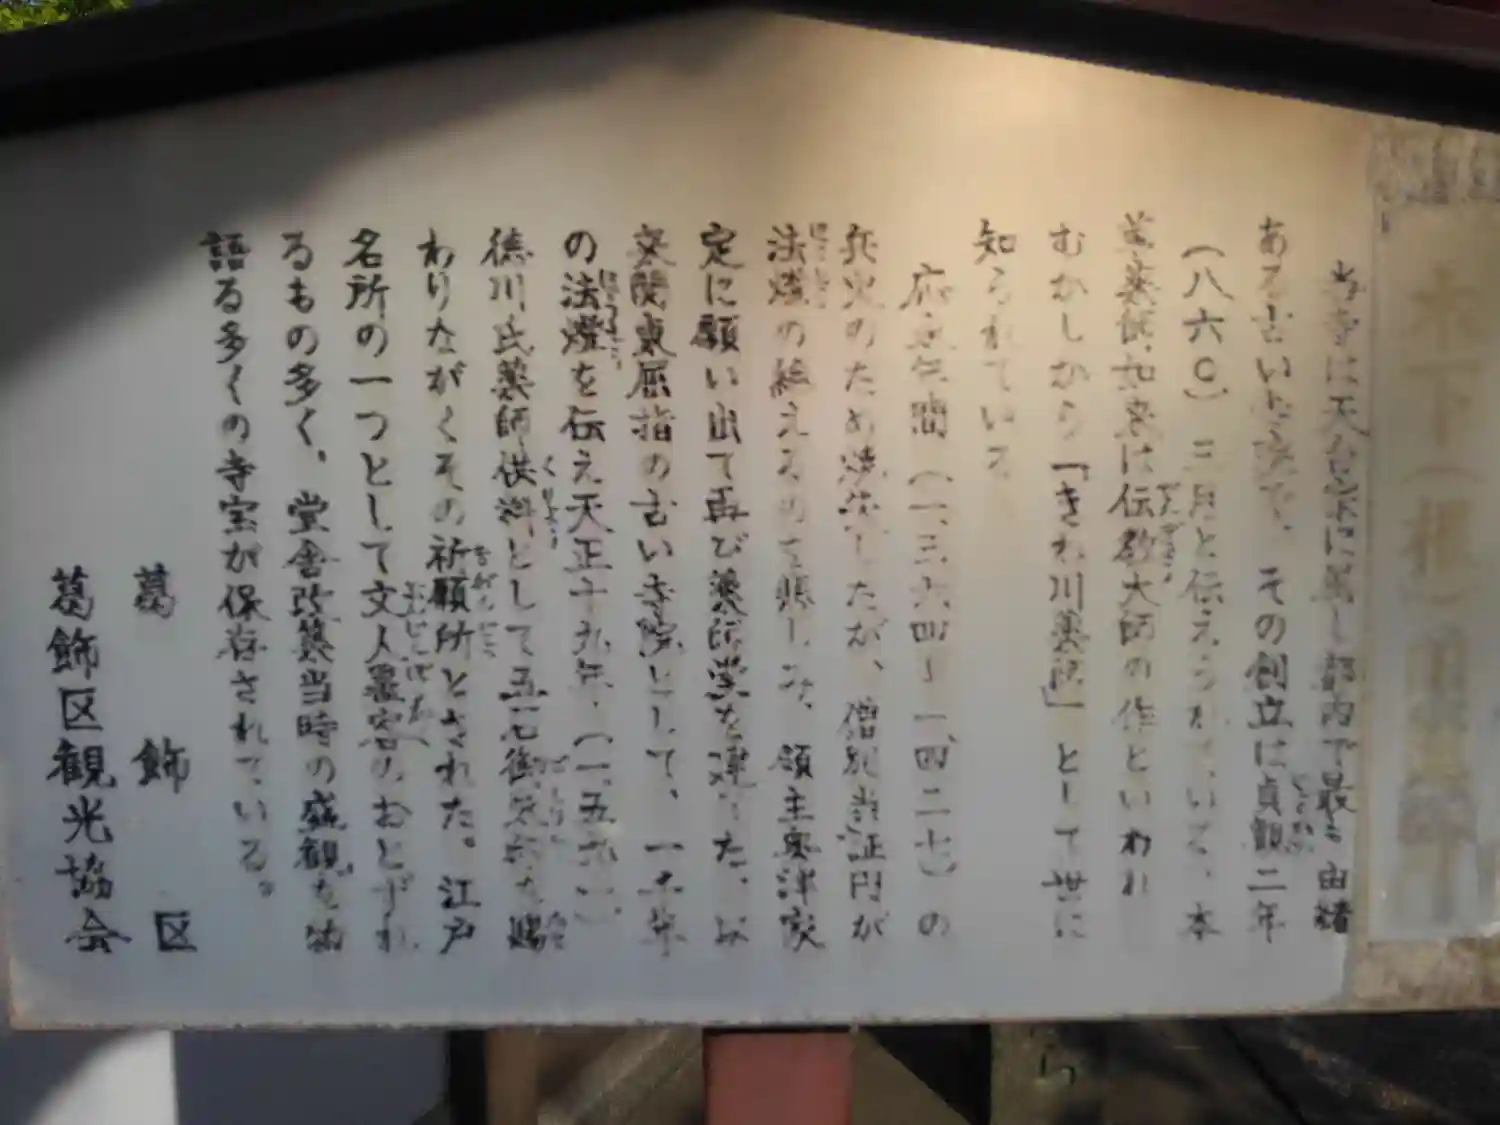 木下(根)川薬師
当寺は天台宗に属し都内で最も由緒
ある古い寺で、その創立は貞観二年
(八六〇)三月と伝えられている。本
尊薬師如来は伝教大師の作といわれ
むかしから「きね川薬師」として世に
知られている
応永年間(一、三六四~一、四二七)の
兵火のため焼失したが、僧別当証円が
法燈の絶えるのを悲しみ、領主奥津家
定に願い出て再び薬師堂を建てた。以
来関東屈指の古い寺院として、一千年
の法燈を伝え天正十九年(一、五九一)
徳川氏薬師供料として五石御朱印を賜
わりながくその祈願所とされた。江戸
名所の一つとして文人墨客のおとずれ
るもの多く、堂舎改築当時の盛観を物
語る多くの寺宝が保存されている。
葛飾区
葛飾区観光協会